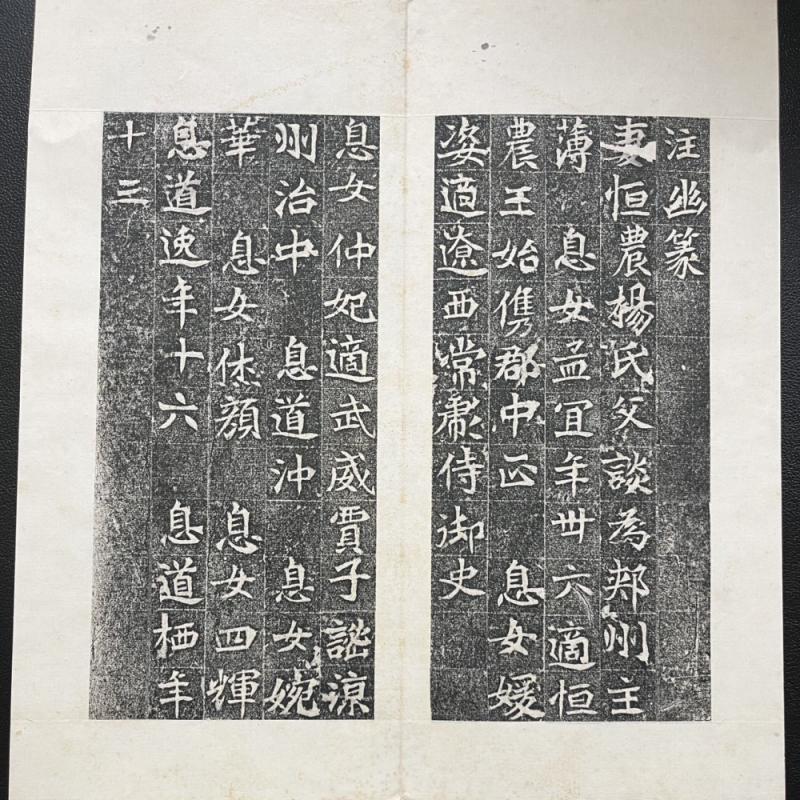 注幽篆
妻恒農楊氏父談為郟州主
薄 息女孟宜年卅六適恒
農王始儁郡中正 息女媛
姿適遼西常肅侍御史
息女仲妃適武威賈子謐涼
州治中 息道沖 息女婉
華 息女休顏 息女四輝
息道逸年十六 息道栖年
十三